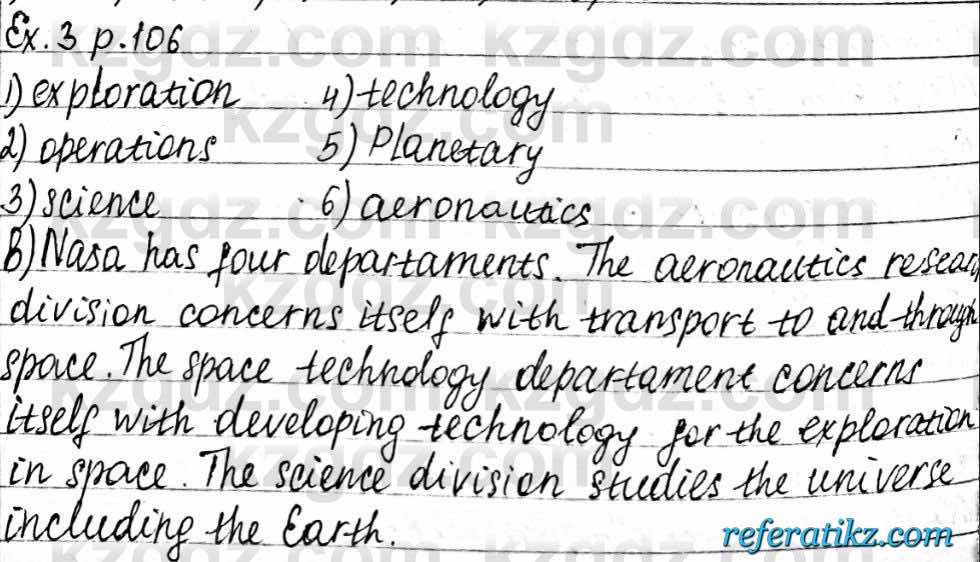 Ex. 3 p. 106
1) exploration 4) technology
2) operations 5) Planetary
3) science 6) aeronautics
B) Nasa has four departaments. The aeronautics reseac
division concerns itself with transport to and through
space. The space technology departament concerns
itself with developing technology for the exploration
in space. The science division studies the universe
including the Earth.
referatikz.com
kzgdz.com